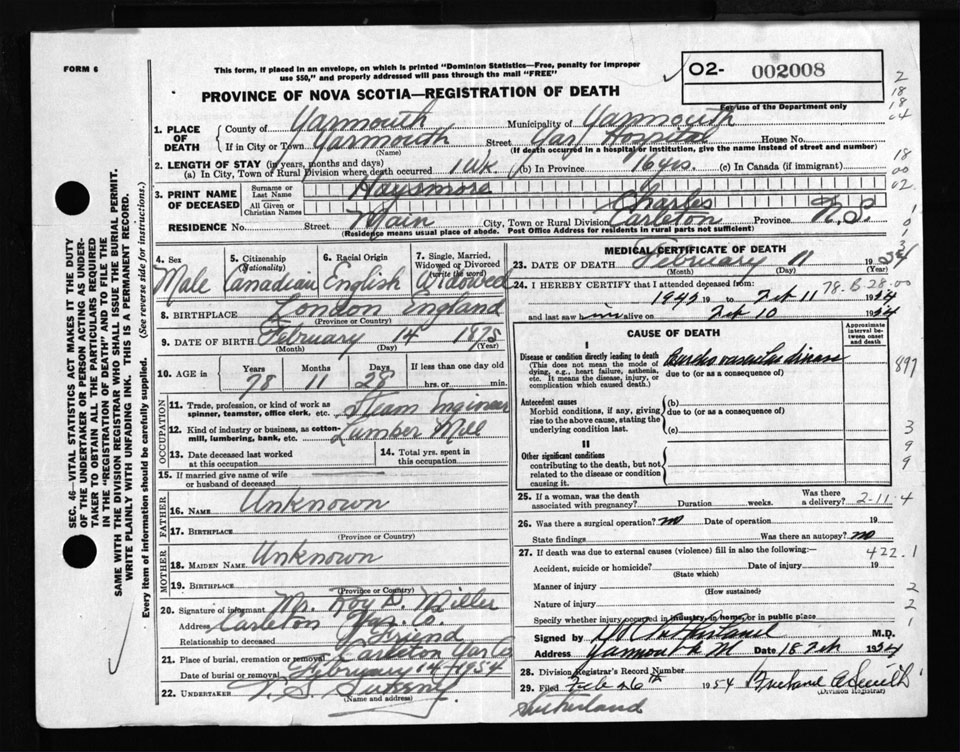 FORM 6
This form, if placed in an envelope, on which is printed "Dominion Statistics—Free, penalty for improper
use $50," and properly addressed will pass through the mail "FREE"
PROVINCE OF NOVA SCOTIA—REGISTRATION OF DEATH
O2- 002008
For use of the Department only
2
18
18
04
18
00
02
SEC. 46—VITAL STATISTICS ACT MAKES IT THE DUTY
OF THE UNDERTAKER OR PERSON ACTING AS UNDER-
TAKER TO OBTAIN ALL THE PARTICULARS REQUIRED
IN THE "REGISTRATION OF DEATH" AND TO FILE THE
SAME WITH THE DIVISION REGISTRAR WHO SHALL ISSUE THE BURIAL PERMIT.
WRITE PLAINLY WITH UNFADING INK. THIS IS A PERMANENT RECORD.
Every item of information should be carefully supplied. (See reverse side for instructions.)
1. PLACE OF DEATH
County of Yarmouth Municipality of Yarmouth
If in City or Town Yarmouth Street Yar Hospital House No.
(Name) (If death occurred in a hospital or institution, give the name instead of street and number)
2. LENGTH OF STAY (in years, months and days)
(a) In City, Town or Rural Division where death occurred 1 Wk. (b) In Province 76 yrs. (c) In Canada (if immigrant)
3. PRINT NAME OF DECEASED
Surname or Last Name Haysmore
All Given or Christian Names Charles
RESIDENCE No. Street Main City, Town or Rural Division Carleton Province N.S.
(Residence means usual place of abode. Post Office Address for residents in rural parts not sufficient)
4. Sex Male
5. Citizenship (Nationality) Canadian
6. Racial Origin English
7. Single, Married, Widowed or Divorced (write the word) Widowed
8. BIRTHPLACE London England
(Province or Country)
9. DATE OF BIRTH February 14 1875
(Month) (Day) (Year)
10. AGE in Years 78 Months 11 Days 28 If less than one day old hrs. or min.
OCCUPATION
11. Trade, profession, or kind of work as spinner, teamster, office clerk, etc. Steam Engineer
12. Kind of industry or business, as cotton-mill, lumbering, bank, etc. Lumber Mill
13. Date deceased last worked at this occupation
14. Total yrs. spent in this occupation
15. If married give name of wife or husband of deceased
FATHER
16. NAME Unknown
17. BIRTHPLACE
(Province or Country)
MOTHER
18. MAIDEN NAME Unknown
19. BIRTHPLACE
(Province or Country)
20. Signature of informant Mr. Roy D. Miller
Address Carleton Yar. Co.
Relationship to deceased Friend
21. Place of burial, cremation or removal Carleton Yar Co
Date of burial or removal February 14, 1954
22. UNDERTAKER
(Name and address)
MEDICAL CERTIFICATE OF DEATH
23. DATE OF DEATH February 11 1954
(Month) (Day) (Year)
24. I HEREBY CERTIFY that I attended deceased from: 78-B-28-00
19 to Feb 11 1954
and last saw him alive on Feb 10 1954
CAUSE OF DEATH
Approximate interval between onset and death
I
Disease or condition directly leading to death
(This does not mean the mode of dying, e.g., heart failure, asthenia, etc. It means the disease, injury, or complication which caused death.)
Cardio vascular disease
due to (or as a consequence of)
897
Antecedent causes
Morbid conditions, if any, giving rise to the above cause, stating the underlying condition last.
(b)
due to (or as a consequence of)
(c)
3
9
9
II
Other significant conditions
contributing to the death, but not related to the disease or condition causing it.
25. If a woman, was the death associated with pregnancy? Duration weeks. Was there a delivery? 2-11-4
26. Was there a surgical operation? no Date of operation 19
State findings Was there an autopsy? no
27. If death was due to external causes (violence) fill in also the following:— 422.1
Accident, suicide or homicide? Date of injury 19
(State which)
Manner of injury 2
(How sustained)
Nature of injury 2
Specify whether injury occurred in industry, in home, or in public place 1
Signed by M.D.
Address Yarmouth Date 18 Feb 1954
28. Division Registrar's Record Number
29. Filed Feb 26th 1954
(Division Registrar)
Sutherland